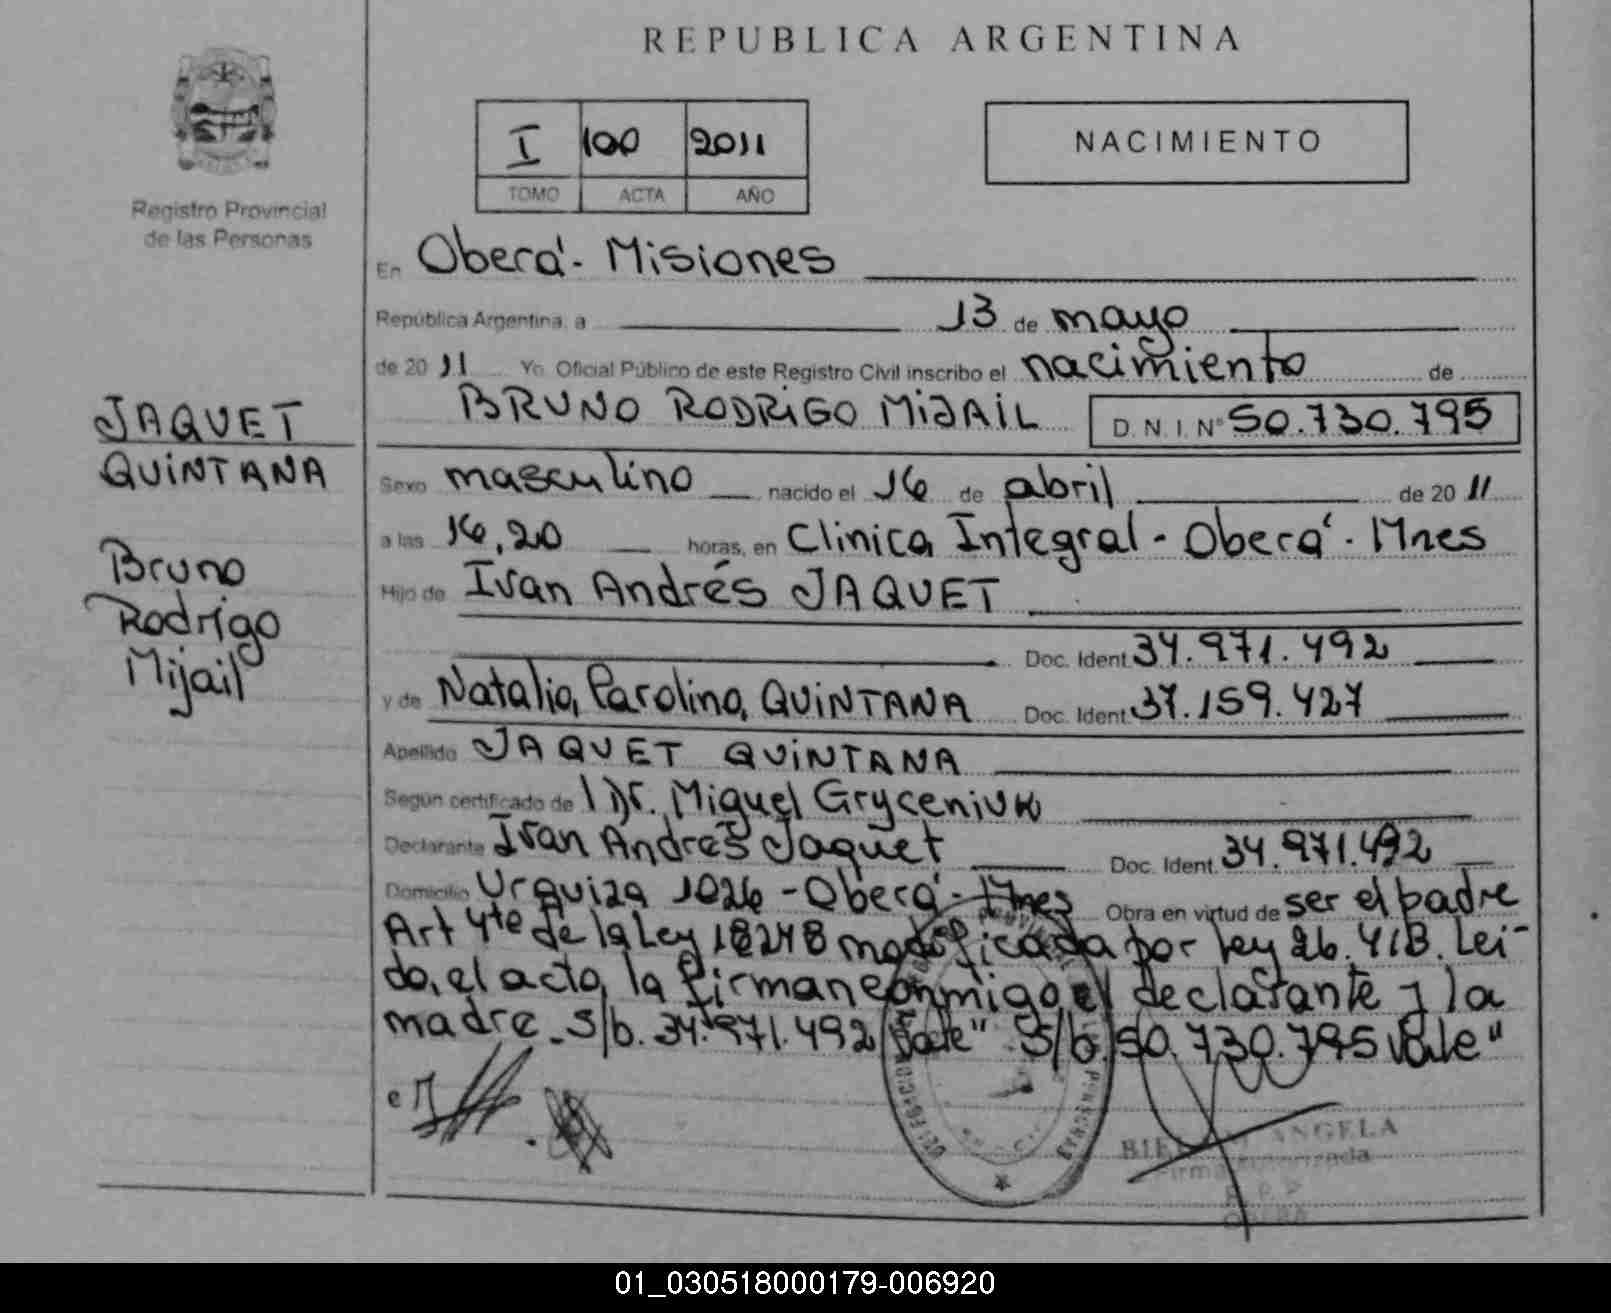 REPUBLICA ARGENTINA
I 100 2011
TOMO ACTA AÑO
NACIMIENTO
Registro Provincial
de las Personas
JAQUET
QUINTANA
Bruno
Rodrigo
Mijail
En Oberá - Misiones
República Argentina, a 13 de mayo
de 2011 Yo Oficial Público de este Registro Civil inscribo el nacimiento de
BRUNO RODRIGO MIJAIL D.N.I. Nº 50.730.795
Sexo masculino nacido el 16 de abril de 2011
a las 16,20 horas, en Clinica Integral - Oberá - Mnes
Hijo de Ivan Andrés JAQUET
Doc. Ident. 34.971.492
y de Natalia Carolina QUINTANA Doc. Ident. 37.159.427
Apellido JAQUET QUINTANA
Según certificado de Dr. Miguel Gryceniuk
Declarante Ivan Andrés Jaquet Doc. Ident. 34.971.492
Domicilio Urquiza 1026 - Oberá - Mnes Obra en virtud de ser el padre
Art 4te de la Ley 18248 modificada por Ley 26.413. Lei-
do, el acta, la firman conmigo el declarante y la
madre. S/b. 34.971.492 "Vale" S/b. 50.730.795 Vale"
ANGELA
Firma Autorizada
01_030518000179-006920